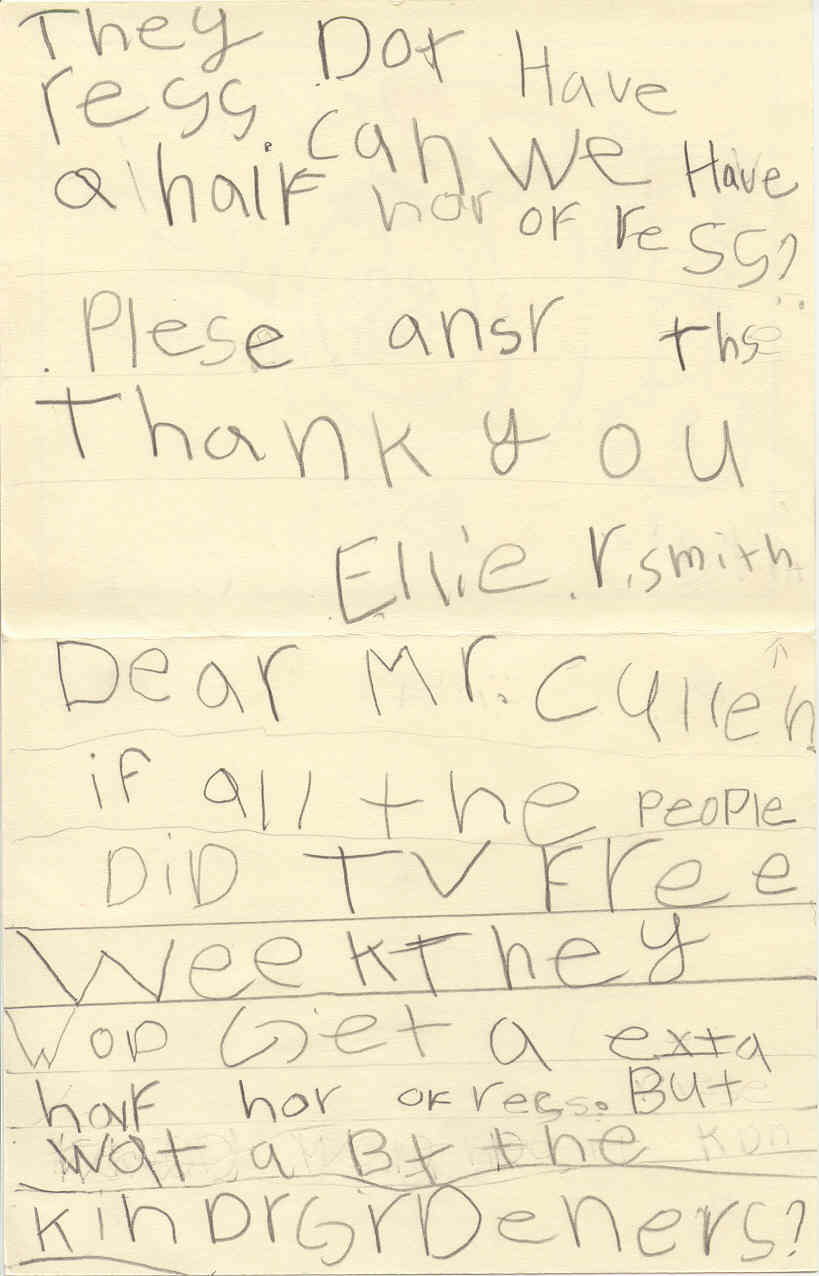 They Dot Have
ress. can we Have
a half hor of ress?
Plese ansr ths
thank you
Ellie.r.smith
Dear Mr. Cullen
if all the people
DiD TV Free
Week They
WoD Get a exta
half hor of ress. But
wat a Bt the
kinDrGrDeners?